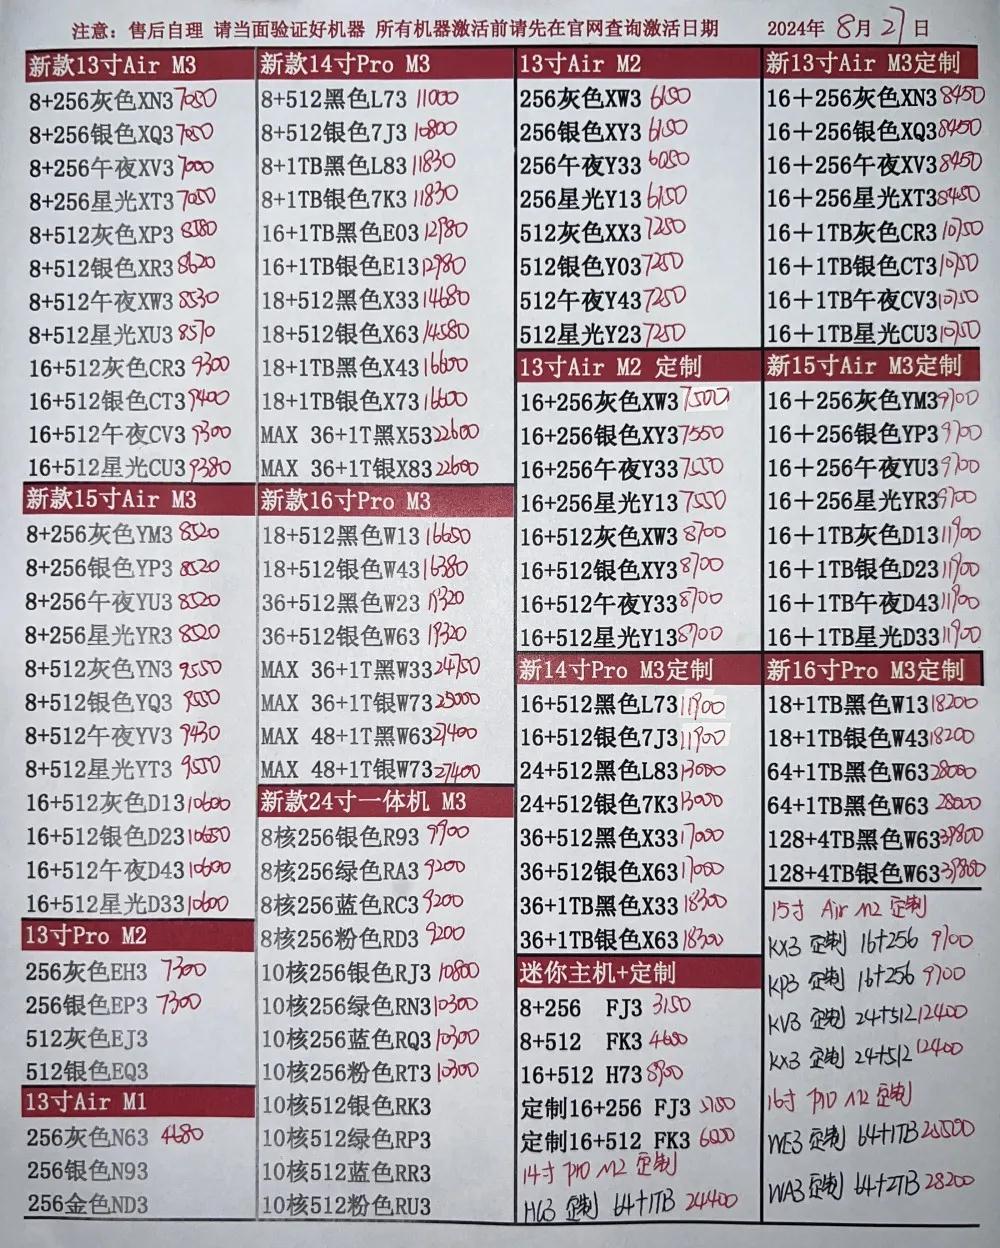 注意：售后自理 请当面验证好机器 所有机器激活前请先在官网查询激活日期 2024年 8月27日
新款13寸Air M3
8+256灰色XN3 7050
8+256银色XQ3 7050
8+256午夜XV3 7000
8+256星光XT3 7050
8+512灰色XP3 8580
8+512银色XR3 8620
8+512午夜XW3 8530
8+512星光XU3 8570
16+512灰色CR3 9300
16+512银色CT3 9400
16+512午夜CV3 9300
16+512星光CU3 9380
新款15寸Air M3
8+256灰色YM3 8520
8+256银色YP3 8520
8+256午夜YU3 8520
8+256星光YR3 8520
8+512灰色YN3 9550
8+512银色YQ3 9550
8+512午夜YV3 9430
8+512星光YT3 9550
16+512灰色D13 10600
16+512银色D23 10650
16+512午夜D43 10600
16+512星光D33 10600
13寸Pro M2
256灰色EH3 7300
256银色EP3 7300
512灰色EJ3
512银色EQ3
13寸Air M1
256灰色N63 4680
256银色N93
256金色ND3
新款14寸Pro M3
8+512黑色L73 11000
8+512银色7J3 10800
8+1TB黑色L83 11830
8+1TB银色7K3 11830
16+1TB黑色E03 12980
16+1TB银色E13 12980
18+512黑色X33 14680
18+512银色X63 14580
18+1TB黑色X43 16600
18+1TB银色X73 16600
MAX 36+1T黑X53 22600
MAX 36+1T银X83 22600
新款16寸Pro M3
18+512黑色W13 16650
18+512银色W43 16380
36+512黑色W23 19320
36+512银色W63 19320
MAX 36+1T黑W33 24750
MAX 36+1T银W73 25000
MAX 48+1T黑W63 27400
MAX 48+1T银W73 27400
新款24寸一体机 M3
8核256银色R93 9900
8核256绿色RA3 9200
8核256蓝色RC3 9200
8核256粉色RD3 9200
10核256银色RJ3 10800
10核256绿色RN3 10300
10核256蓝色RQ3 10300
10核256粉色RT3 10300
10核512银色RK3
10核512绿色RP3
10核512蓝色RR3
10核512粉色RU3
13寸Air M2
256灰色XW3 6150
256银色XY3 6150
256午夜Y33 6050
256星光Y13 6150
512灰色XX3 7250
512银色Y03 7250
512午夜Y43 7250
512星光Y23 7250
13寸Air M2 定制
16+256灰色XW3 7500
16+256银色XY3 7550
16+256午夜Y33 7550
16+256星光Y13 7550
16+512灰色XW3 8700
16+512银色XY3 8700
16+512午夜Y33 8700
16+512星光Y13 8700
新14寸Pro M3定制
16+512黑色L73 11900
16+512银色7J3 11900
24+512黑色L83 13000
24+512银色7K3 13000
36+512黑色X33 17000
36+512银色X63 17000
36+1TB黑色X33 18300
36+1TB银色X63 18300
迷你主机+定制
8+256 FJ3 3150
8+512 FK3 4600
16+512 H73 8900
定制16+256 FJ3
定制16+512 FK3 6000
14寸 pro M2 定制
HG3 定制 64+1TB 24400
新13寸Air M3定制
16＋256灰色XN3 8450
16＋256银色XQ3 8450
16＋256午夜XV3 8450
16＋256星光XT3 8450
16＋1TB灰色CR3 10750
16＋1TB银色CT3 10750
16＋1TB午夜CV3 10750
16＋1TB星光CU3 10750
新15寸Air M3定制
16＋256灰色YM3 9700
16＋256银色YP3 9700
16＋256午夜YU3 9700
16＋256星光YR3 9700
16＋1TB灰色D13 11900
16＋1TB银色D23 11900
16＋1TB午夜D43 11900
16＋1TB星光D33 11900
新16寸Pro M3定制
18+1TB黑色W13 18200
18+1TB银色W43 18200
64+1TB黑色W63 28000
64+1TB黑色W63 28000
128+4TB黑色W63 39800
128+4TB银色W63 39800
15寸 Air M2 定制
KX3 定制 16+256 9700
KP3 定制 16+256 9700
KV3 定制 24+512 12400
KX3 定制 24+512 12400
16寸 pro M2 定制
WE3 定制 64+1TB 25500
WA3 定制 64+2TB 28200